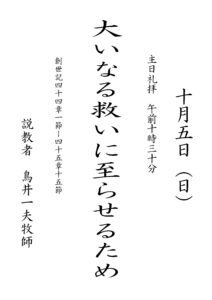 十月五日（日）
主日礼拝　午前十時三十分
大いなる救いに至らせるため
創世記四十四章一節～四十五章十五節
説教者　鳥井一夫牧師